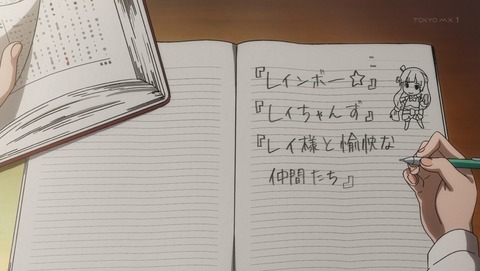 TOKYO MX 1
『レインボー☆』
『レイちゃんず』
『レイ様と愉快な
仲間たち』